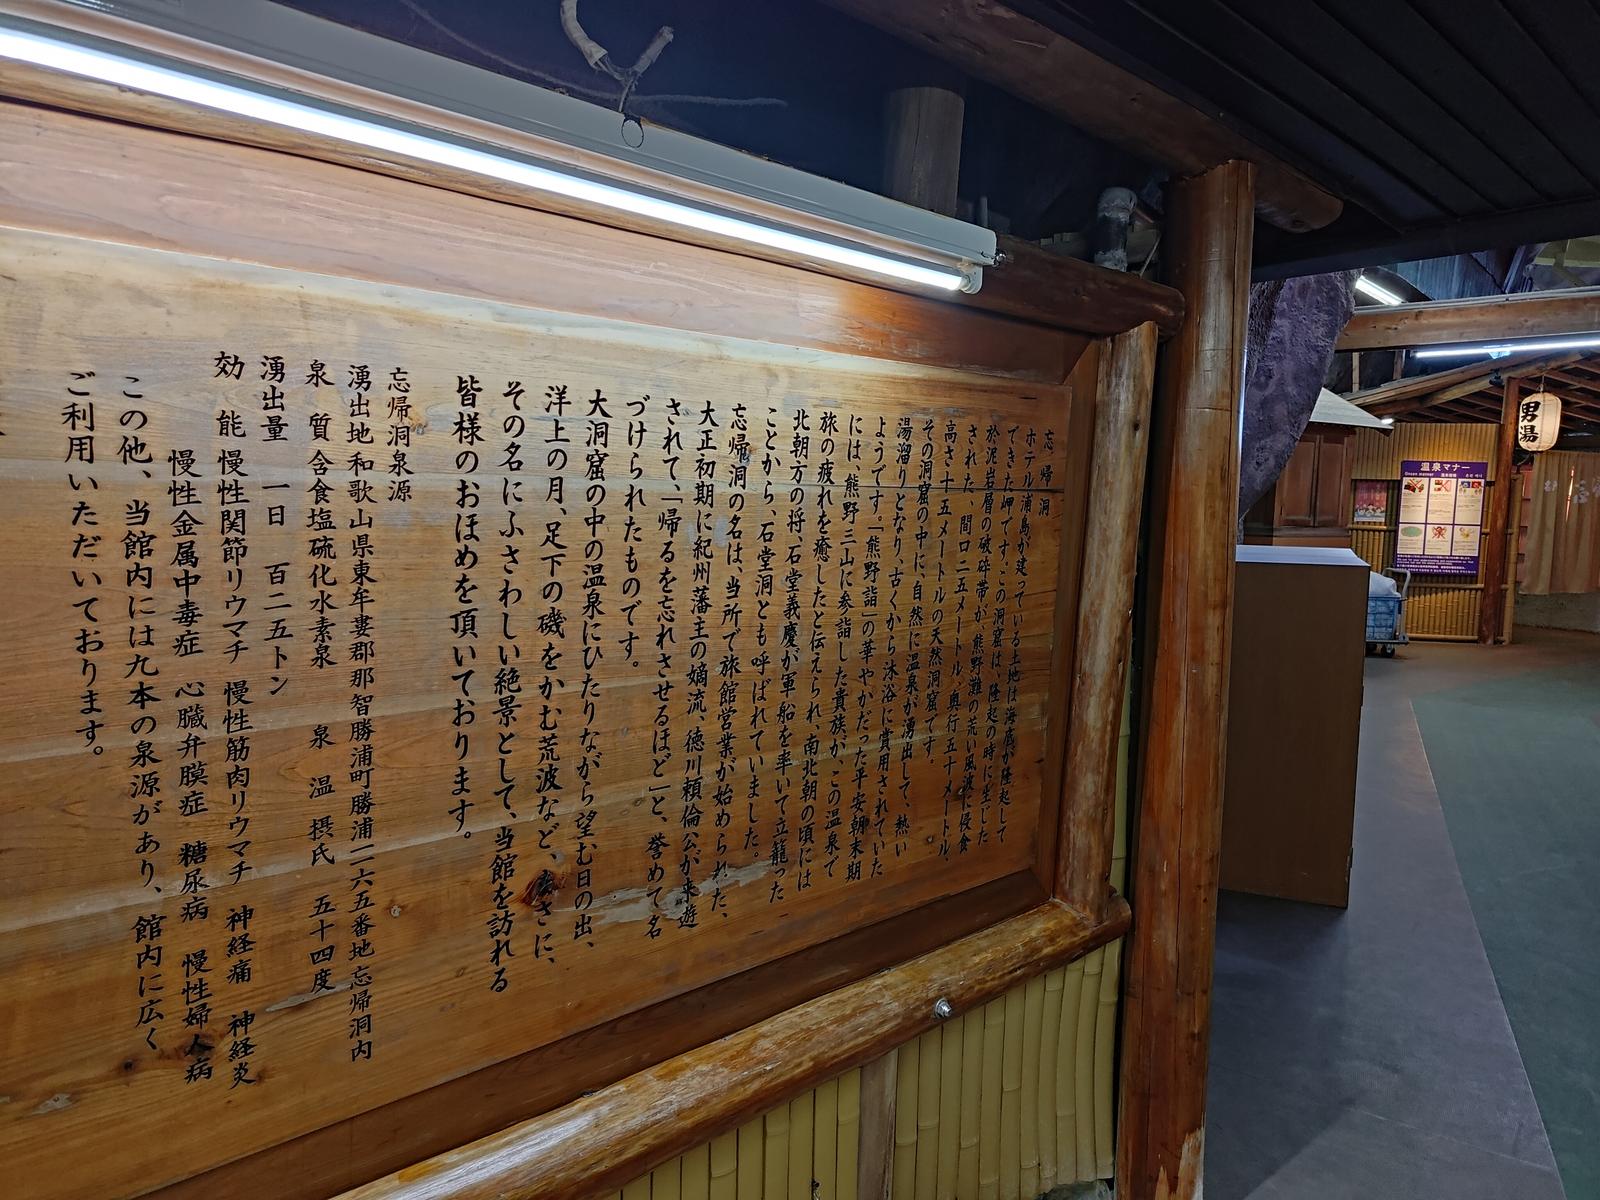 忘帰洞
ホテル浦島が建っている土地は海底が隆起して
できた岬です。この洞窟は、隆起の時に生じた
於泥岩層の破砕帯が熊野灘の荒い風波に侵食
された、間口二五メートル、奥行五十メートル、
高さ十五メートルの天然洞窟です。
その洞窟の中に、自然に温泉が湧出して、熱い
湯溜りとなり、古くから沐浴に賞用されていた
ようです。「熊野詣」の華やかだった平安朝末期
には、熊野三山に参詣した貴族が、この温泉で
旅の疲れを癒したと伝えられ、南北朝の頃には
北朝方の将、石堂義慶が軍船を率いて立籠った
ことから、石堂洞とも呼ばれていました。
忘帰洞の名は、当所で旅館営業が始められた、
大正初期に紀州藩主の嫡流、徳川頼倫公が来遊
されて、「帰るを忘れさせるほど」と、誉めて名
づけられたものです。
大洞窟の中の温泉にひたりながら望む日の出、
洋上の月、足下の磯をかむ荒波など、まさに、
その名にふさわしい絶景として、当館を訪れる
皆様のおほめを頂いております。
忘帰洞泉源
湧出地 和歌山県東牟婁郡那智勝浦町勝浦一一六五番地忘帰洞内
泉 質 含食塩硫化水素泉 泉 温 摂氏 五十四度
湧出量 一日 百二五トン
効 能 慢性関節リウマチ 慢性筋肉リウマチ 神経痛 神経炎
慢性金属中毒症 心臓弁膜症 糖尿病 慢性婦人病
この他、当館内には九本の泉源があり、館内に広く
ご利用いただいております。
男湯
温泉マナー